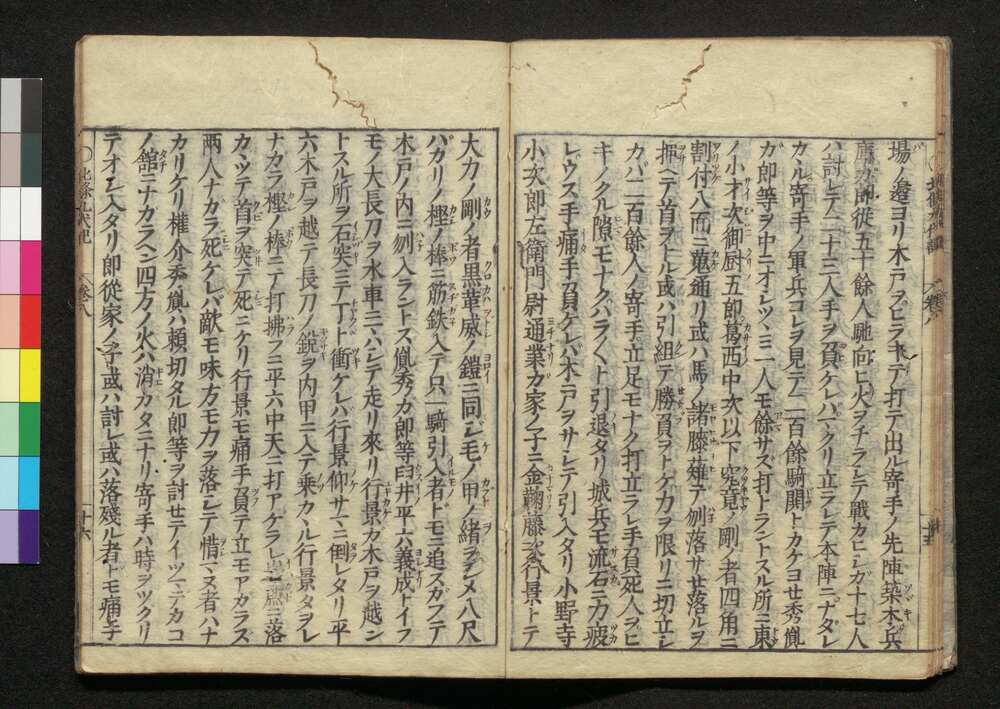 場ノ邊ヨリ木戸ヲヒラキテ打テ出ル寄手ノ先陣築木兵
庫頭師從五十餘人馳向ヒ火ヲチラシテ戰カヒシガ十七人
ハ討レテ二十三人手ヲ負ケレバマクリ立ラレテ本陣ニナダレ
カヽル寄手ノ軍兵コレヲ見テ二百餘騎開トカケヨセ秀胤
カ郎等ヲ中ニオシツヽミ一人モ餘サズ打トラントスル所ニ東
ノ小才次御厨五郎葛西中次以下究竟ノ剛ノ者四角ニ
割付八面ニ蒐通リ或ハ馬ノ諸膝薙テ刎落サセ落ルヲ
押ヘテ首ヲトル或ハ引組テ勝負ヲトゲ力ヲ限リニ切立シ
カバ二百餘人ノ寄手立足モナク打立ラレ手負死人ヲヒ
キノクル隙モナクバラ〱ト引退タリ城兵モ流石ニ力疲
レウス手痛手負ケレバ木戸ヲサシテ引入タリ小野寺
小次郎左衛門尉通業カ家ノ子ニ金鞠藤次行景トテ
大力ノ剛ノ者黒革威ノ鎧ニ同ジ毛ノ甲ノ緒ヲシメ八尺
バカリノ樫ノ棒ニ筋鉄入テ只一騎引入者トモニ追スガフテ
木戸ノ内ニ刎入ラントス胤秀カ郎等臼井平六義成トイフ
モノ大長刀ヲ水車ニマハシテ走リ來リ行景カ木戸ヲ越ン
トスル所ヲ石突ニテ丁ト衝ケレバ行景仰サマニ倒レタリ平
六木戸ヲ越テ長刀ノ鋭ヲ内甲ニ入テ乗カヽル行景タヲレ
ナカラ樫ノ棒ニテ打拂フニ平六中天ニ打アゲラレ落
カヽツテ首ヲ突テ死ニケリ行景モ痛手負テ立モアカラズ
兩人ナガラ死ケレバ敵モ味方モ力ヲ落シテ惜マヌ者ハナ
カリケリ權介秀胤ハ頼切タル郎等ヲ討セテイツマデカコ
ノ館ニナガラヘン四方ノ火ハ消カタニナリ寄手ハ時ヲツクリ
テオシ入タリ郎從家ノ子或ハ討レ或ハ落殘ル者トモ痛手
卷八
十六